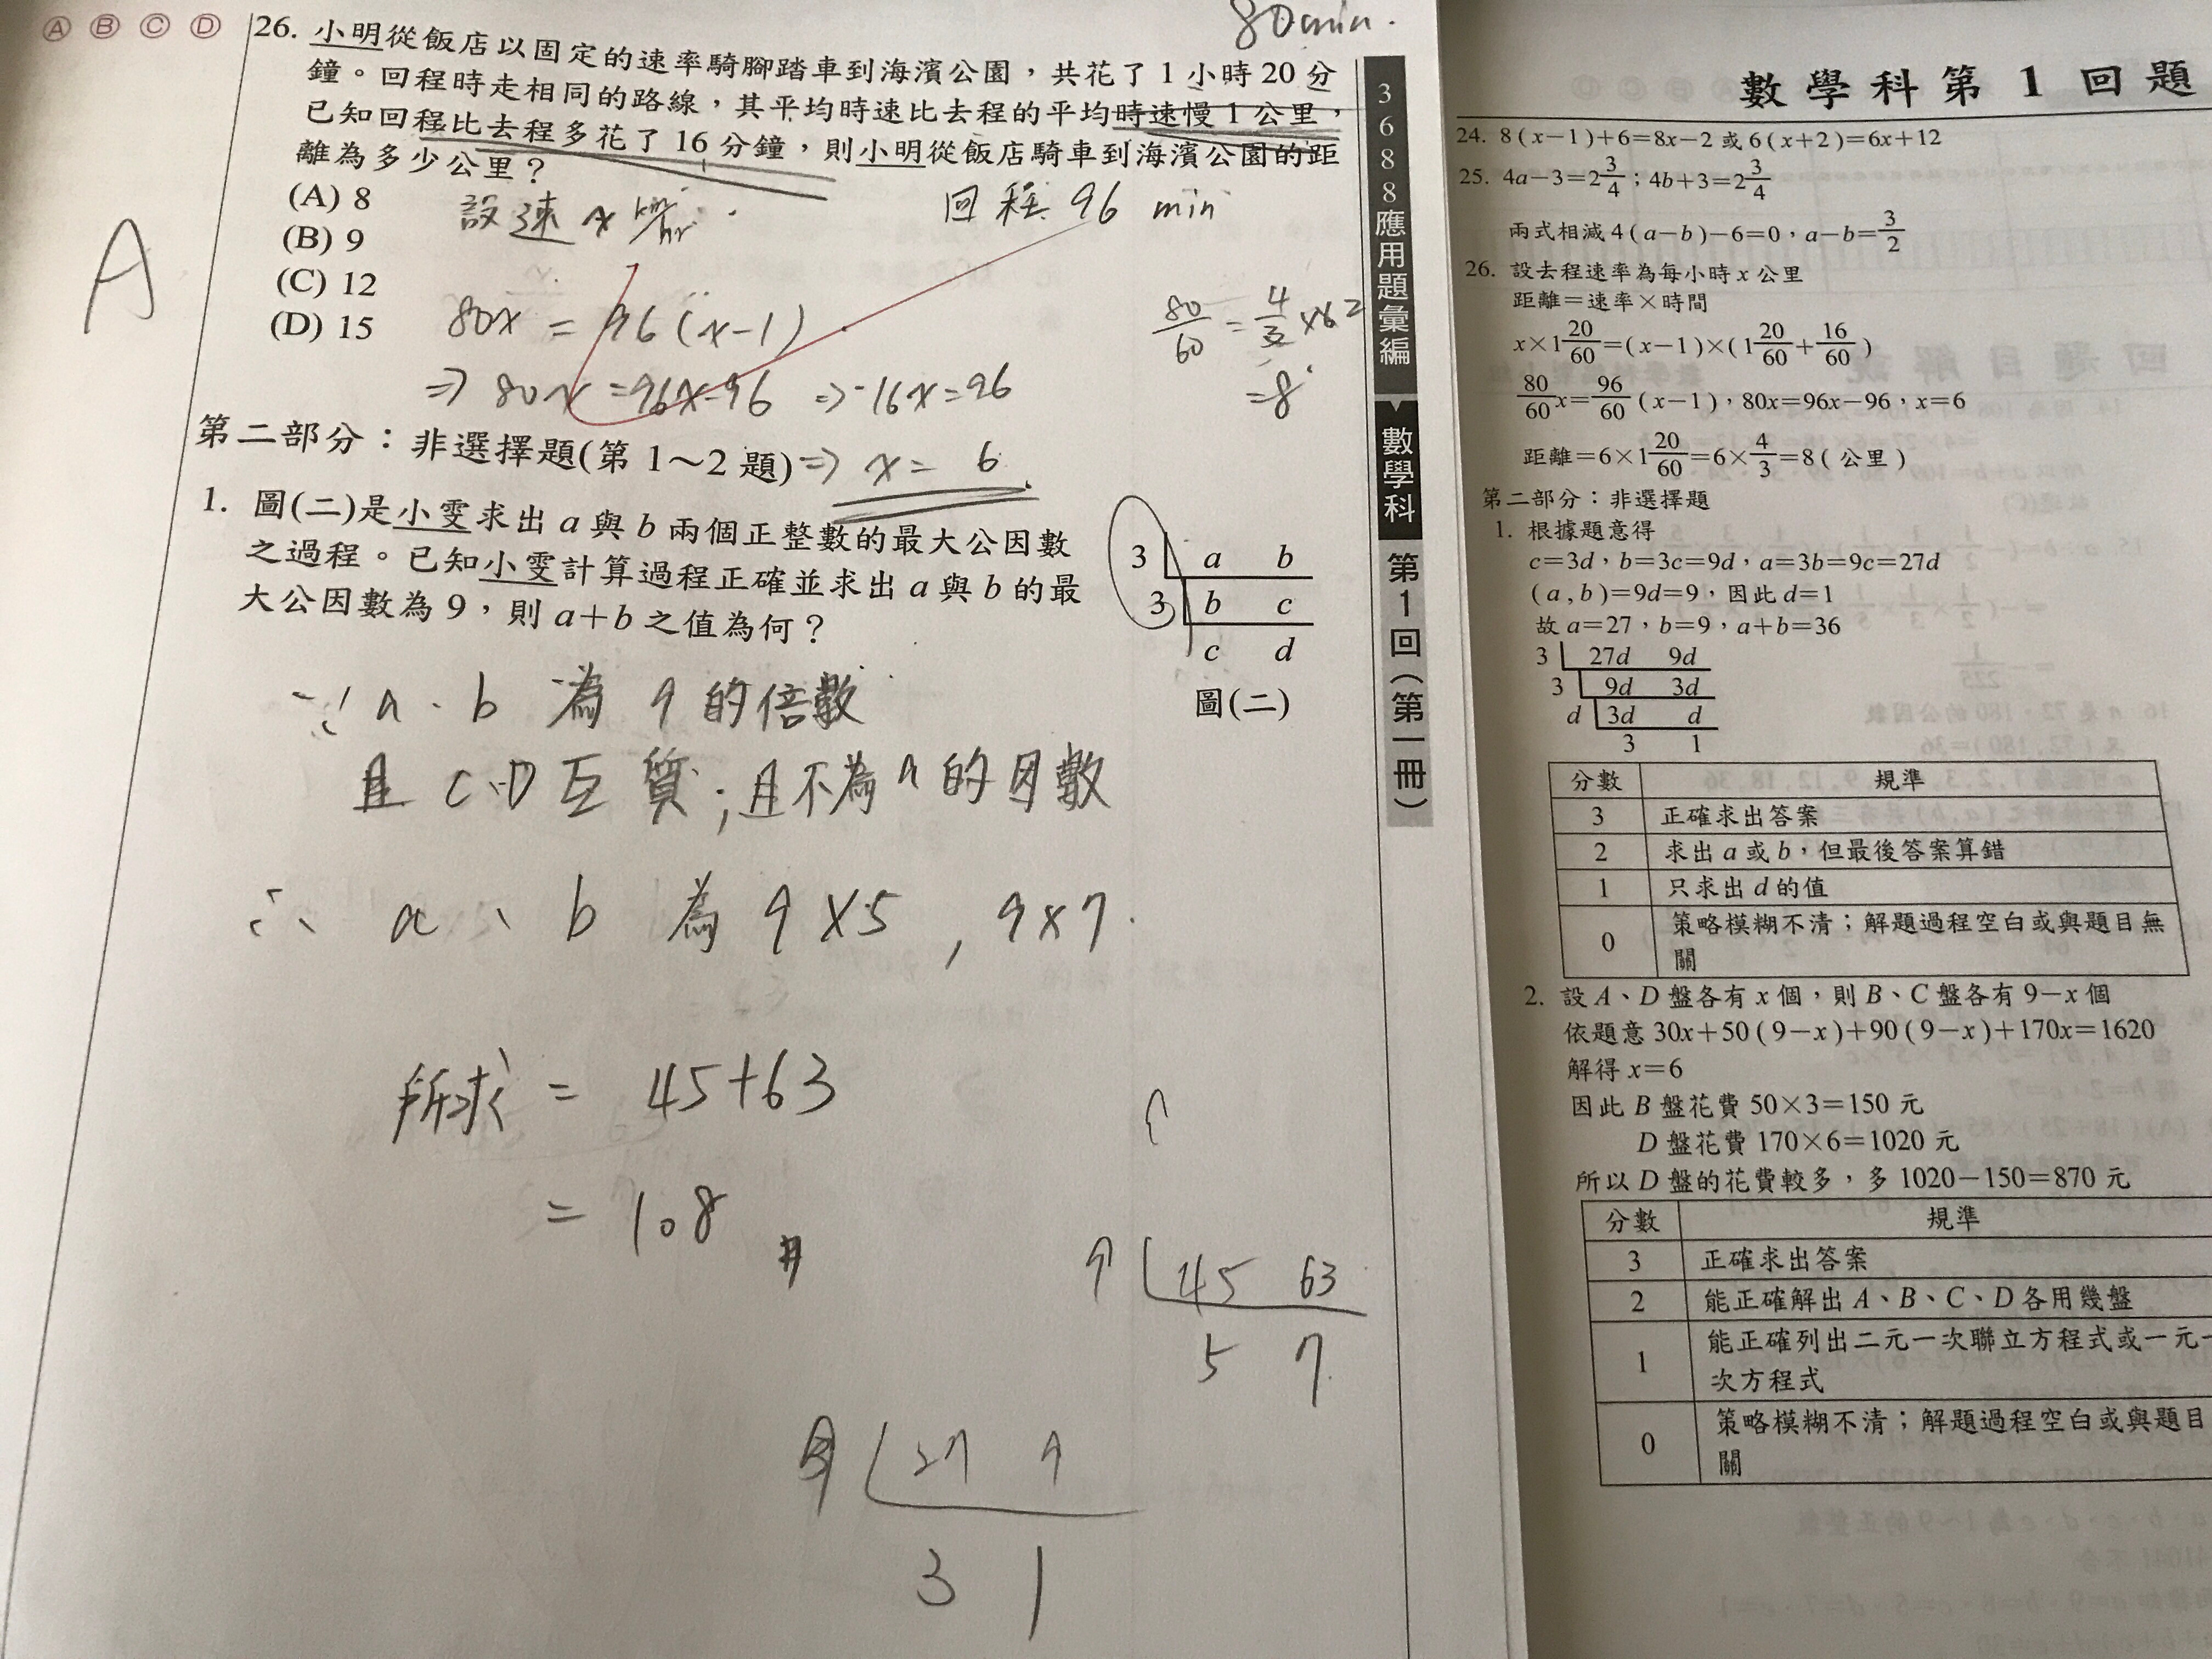 Ⓐ Ⓑ Ⓒ Ⓓ
80min.
26. 小明從飯店以固定的速率騎腳踏車到海濱公園，共花了 1 小時 20 分
鐘。回程時走相同的路線，其平均時速比去程的平均時速慢 1 公里，
已知回程比去程多花了 16 分鐘，則小明從飯店騎車到海濱公園的距
離為多少公里？
(A) 8
(B) 9
(C) 12
(D) 15
A
設速 x km/hr
回程 96 min
80x = 96(x-1)
80/60 = 4/3 ×6
=8
⇒ 80x =96x-96 ⇒ -16x=96
⇒ x = 6
第二部分：非選擇題(第 1～2 題)
1. 圖(二)是小雯求出 a 與 b 兩個正整數的最大公因數
之過程。已知小雯計算過程正確並求出 a 與 b 的最
大公因數為 9，則 a＋b 之值為何？
3 a b
3 b c
c d
圖(二)
∵ a、b 為 9 的倍數
且 c、D 互質；且不為 n 的因數
∴ a、b 為 9×5 , 9×7.
所求 = 45+63
= 108
9 45 63
5 7
27 9
3 1
3688應用題彙編
數學科
第1回(第一冊)
數學科第 1 回題
24. 8(x－1)＋6＝8x－2 或 6(x＋2)＝6x＋12
25. 4a－3＝2 3/4；4b＋3＝2 3/4
兩式相減 4(a－b)－6＝0，a－b＝3/2
26. 設去程速率為每小時 x 公里
距離＝速率×時間
x×1 20/60＝(x－1)×(1 20/60＋16/60)
80/60 x＝96/60 (x－1)，80x＝96x－96，x＝6
距離＝6×1 20/60＝6×4/3＝8(公里)
第二部分：非選擇題
1. 根據題意得
c＝3d，b＝3c＝9d，a＝3b＝9c＝27d
(a , b)＝9d＝9，因此 d＝1
故 a＝27，b＝9，a＋b＝36
3 27d 9d
3 9d 3d
d 3d d
3 1
分數 規準
3 正確求出答案
2 求出 a 或 b，但最後答案算錯
1 只求出 d 的值
0 策略模糊不清；解題過程空白或與題目無
關
2. 設 A、D 盤各有 x 個，則 B、C 盤各有 9－x 個
依題意 30x＋50(9－x)＋90(9－x)＋170x＝1620
解得 x＝6
因此 B 盤花費 50×3＝150 元
D 盤花費 170×6＝1020 元
所以 D 盤的花費較多，多 1020－150＝870 元
分數 規準
3 正確求出答案
2 能正確解出 A、B、C、D 各用幾盤
1 能正確列出二元一次聯立方程式或一元一
次方程式
0 策略模糊不清；解題過程空白或與題目
關